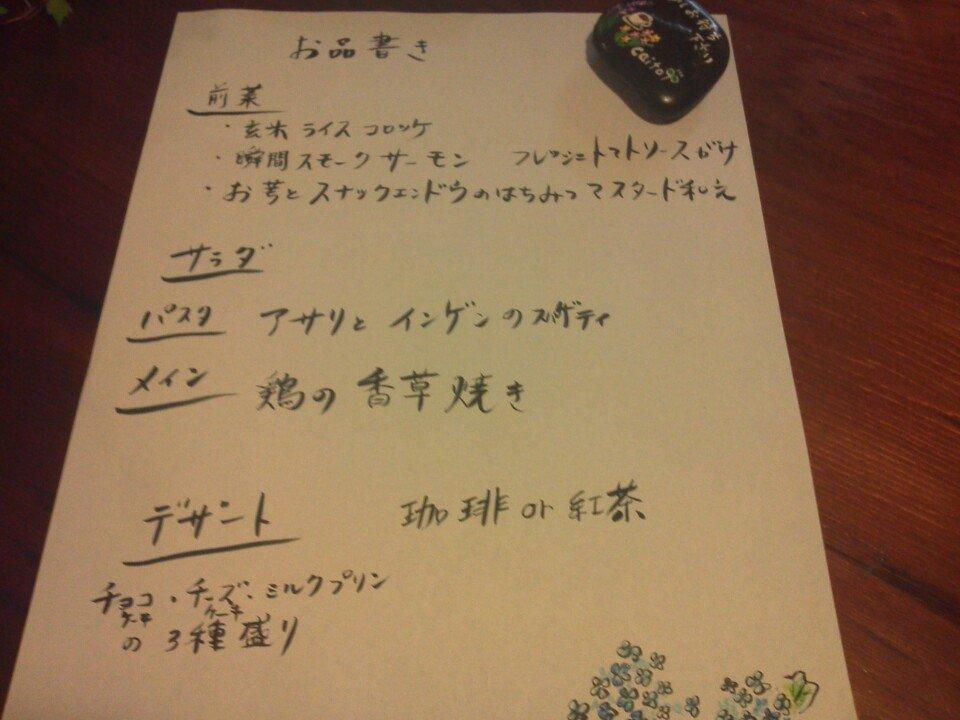 お品書き
前菜
・玄米ライスコロッケ
・瞬間スモークサーモン フレッシュトマトソースがけ
・お芋とスナックエンドウのはちみつマスタード和え
サラダ
パスタ アサリとインゲンのスパゲティ
メイン 鶏の香草焼き
デザート 珈琲or紅茶
チョコケーキ・チーズケーキ・ミルクプリン
の3種盛り
お待ち
下さい